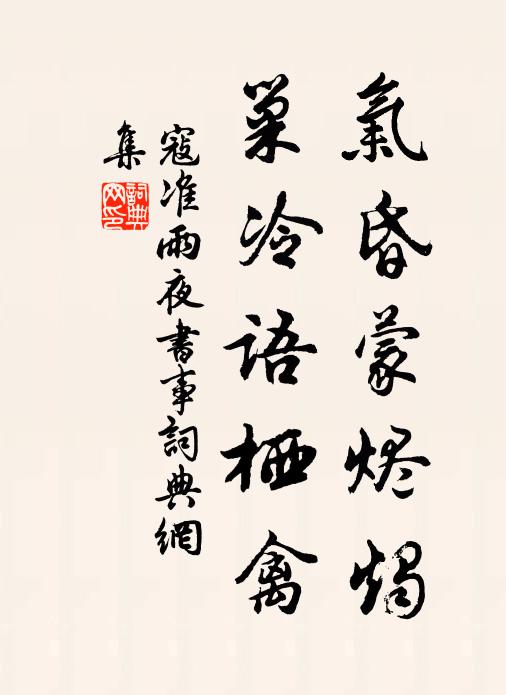 氣昏蒙烬燭
巢冷語栖禽
寇准雨夜書事詞典網
集
詞典
网印